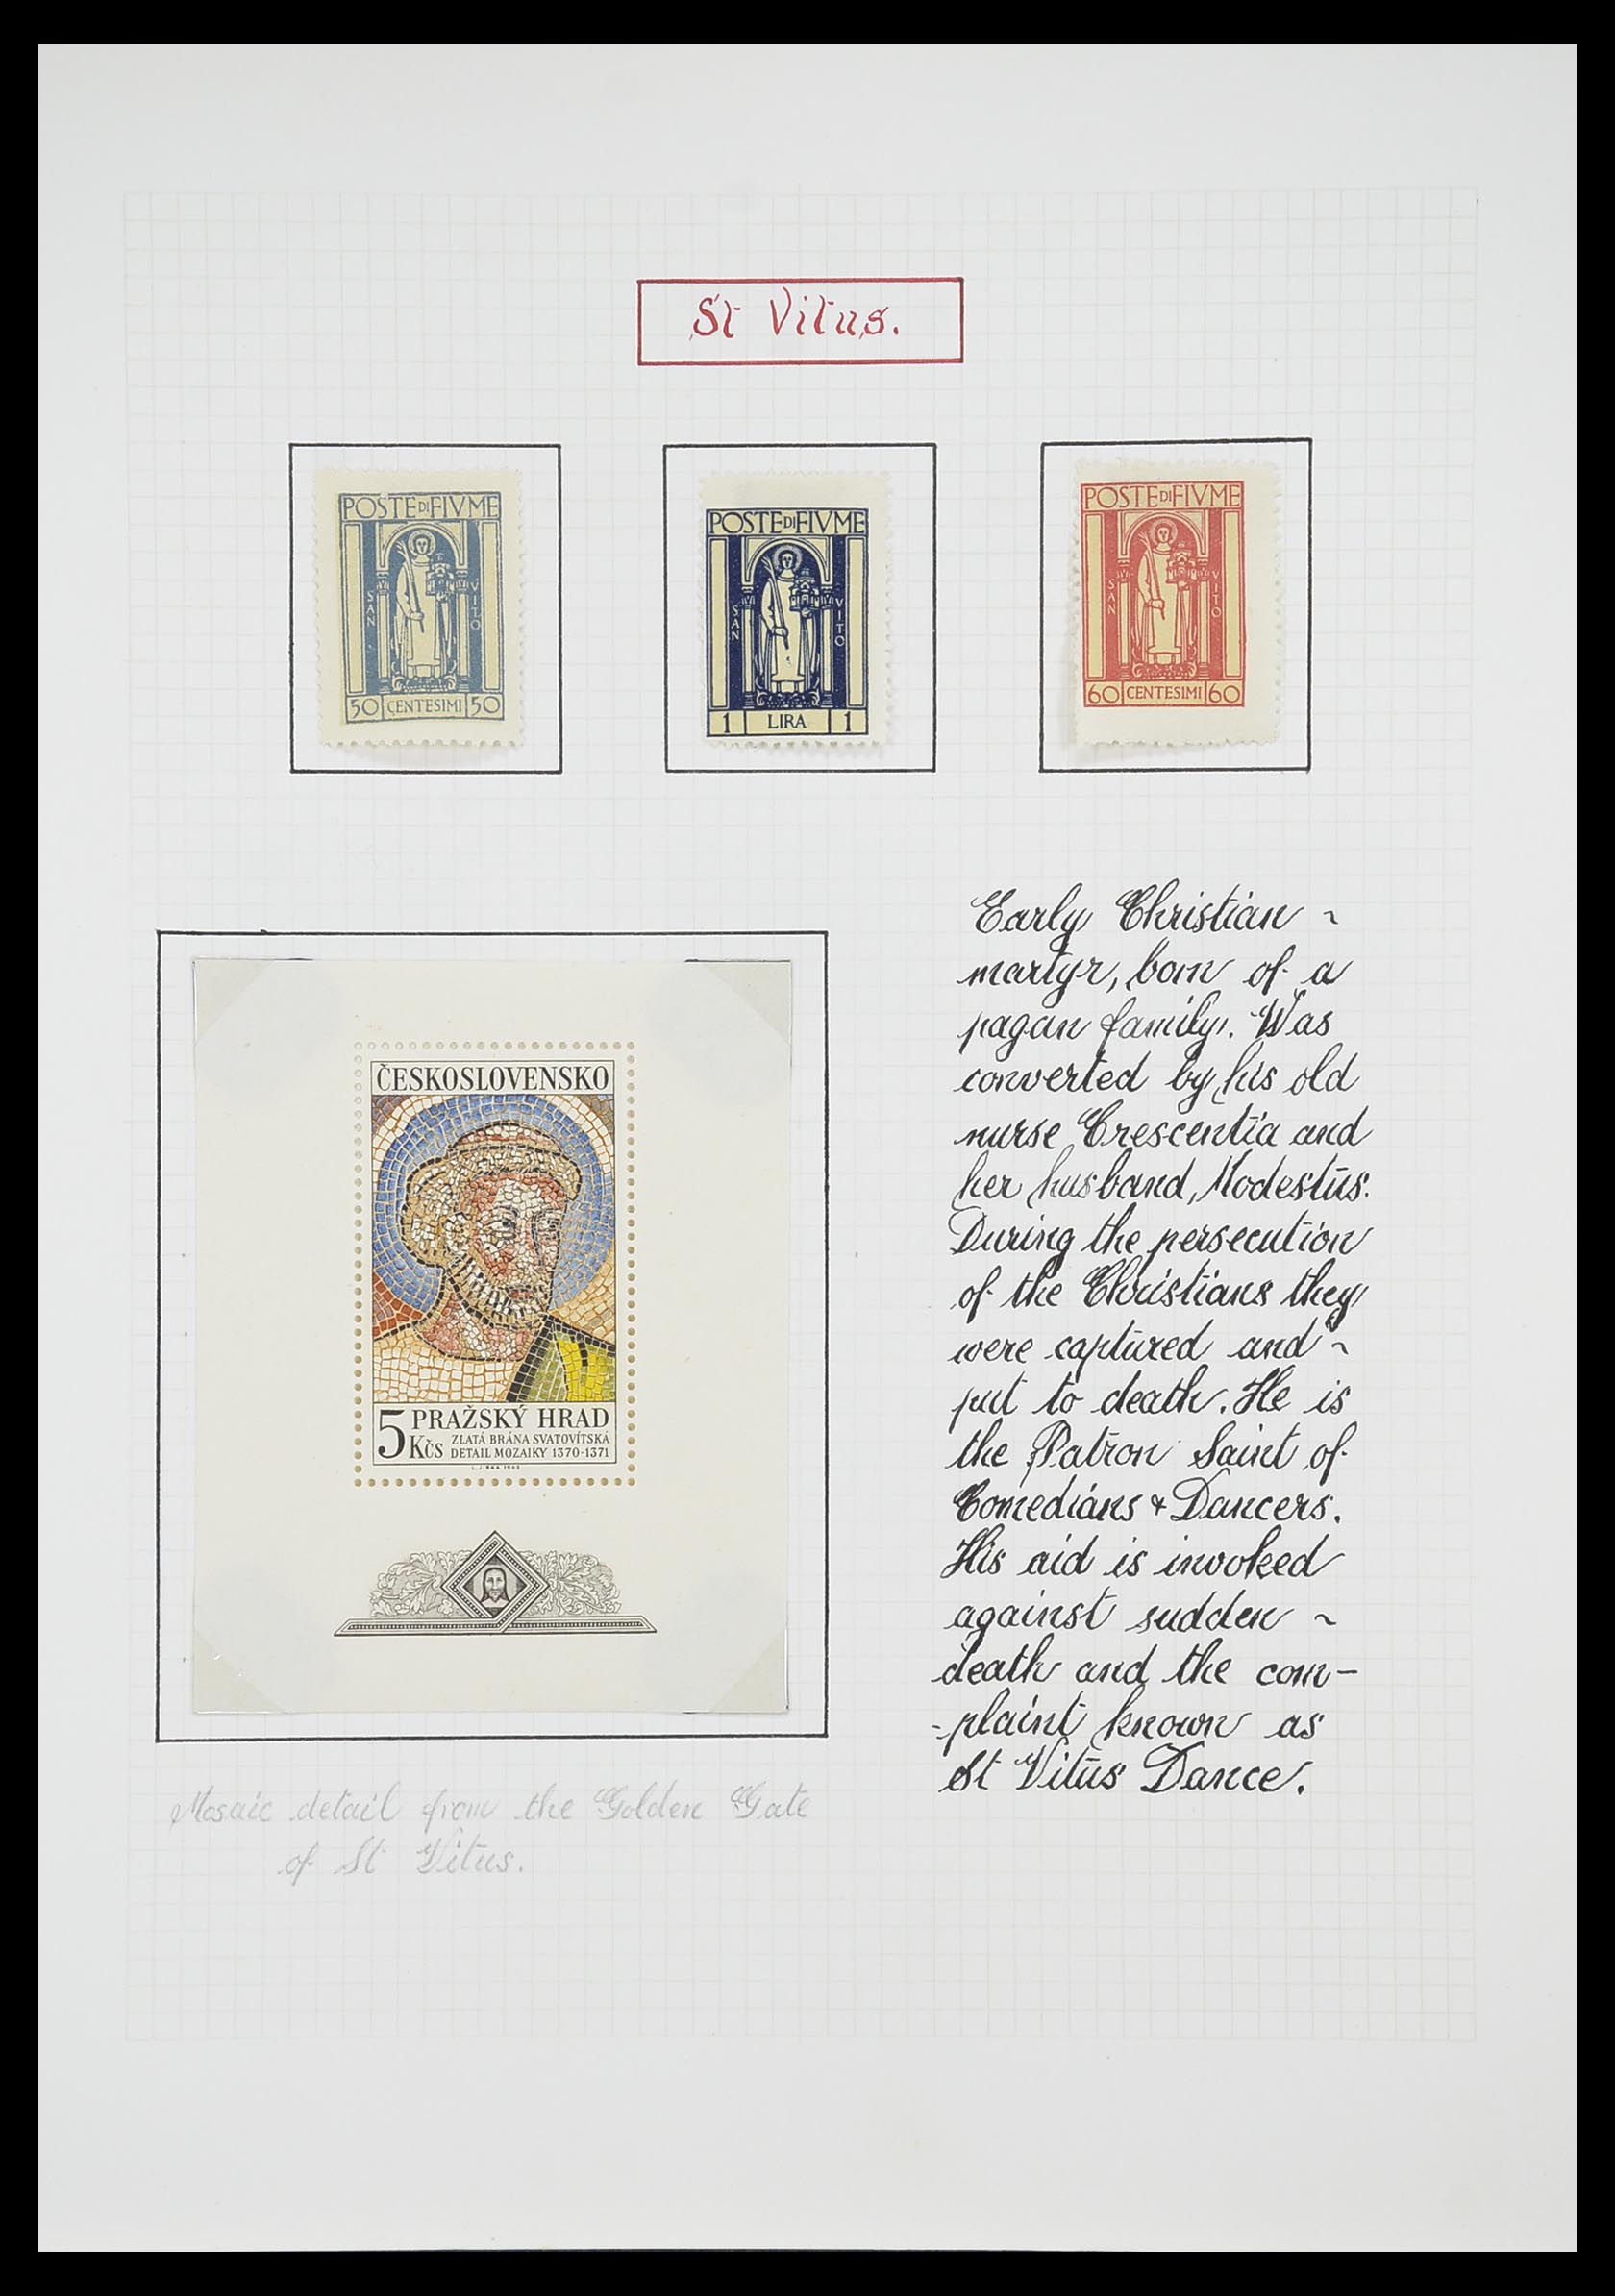 St Vitus.
POSTE DI FIVME
SAN
VITO
50 CENTESIMI 50
POSTE DI FIVME
SAN
VITO
1 LIRA 1
POSTE DI FIVME
SAN
VITO
60 CENTESIMI 60
ČESKOSLOVENSKO
5 Kčs
PRAŽSKÝ HRAD
ZLATÁ BRÁNA SVATOVÍTSKÁ
DETAIL MOZAIKY 1370-1371
Mosaic detail from the Golden Gate
of St Vitus.
Early Christian ~
martyr, born of a
pagan family. Was
converted by his old
nurse Crescentia and
her husband, Modestus.
During the persecution
of the Christians they
were captured and ~
put to death. He is
the Patron Saint of
Comedians & Dancers.
His aid is invoked
against sudden ~
death and the com-
-plaint known as
St Vitus Dance.